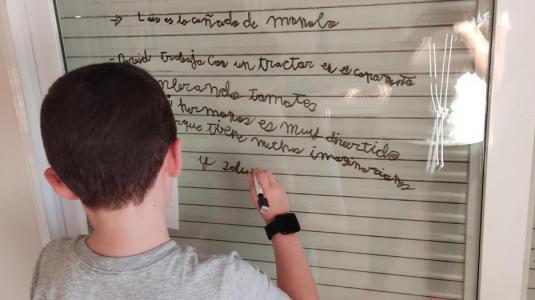 → Luis es lo cuñado de manolo
- David trabaja con un tractor en el campamento
sembrando tomates
hermanos es muy divertido
porque tiene mucha imaginaciones
y solu